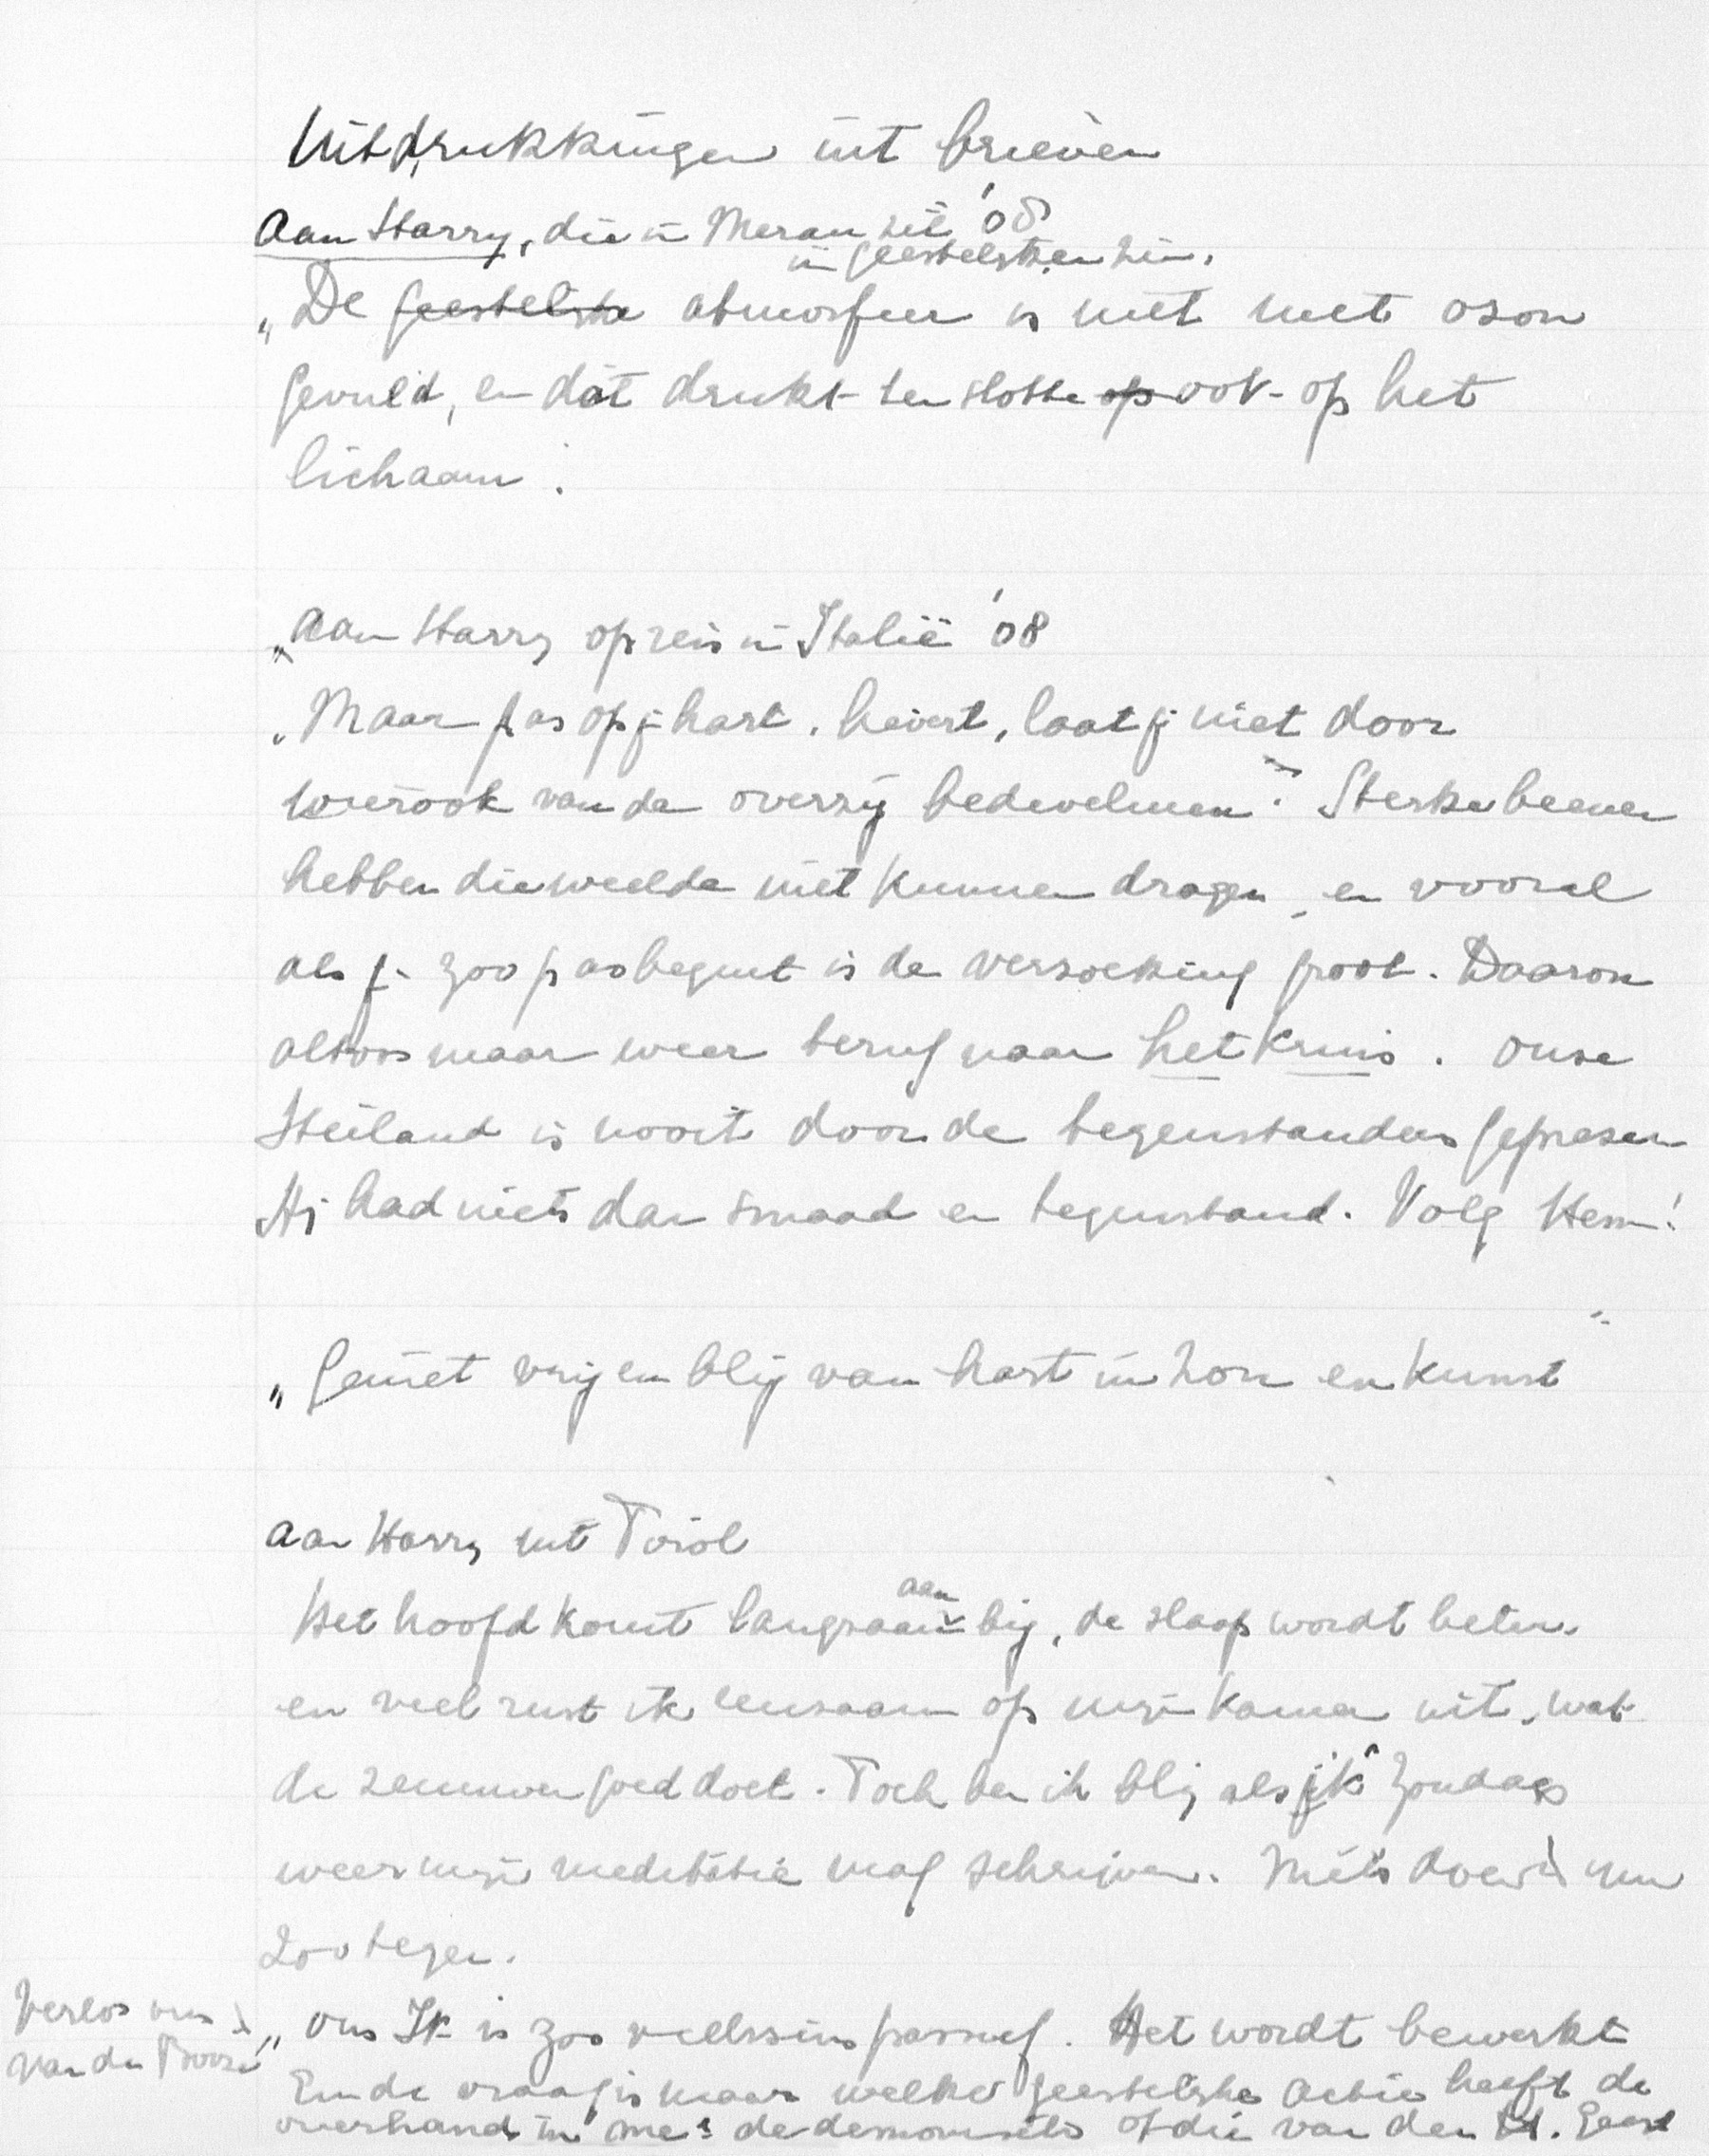 Uitdrukkingen uit brieven
Aan Harry, die in Meran zit '08
in geestelijken zin.
„De geestelijke atmosfeer is niet met ozon
gevuld, en dat drukt ten slotte op ook op het
lichaam."
„Aan Harry op reis in Italië '08
„Maar pas op je hart, lievert, laat je niet door
wierook van de overzij bedwelmen". Sterke beenen
hebben die weelde niet kunnen dragen, en vooral
als je zoo pas begint is de verzoeking groot. Daarom
altoos maar weer terug naar het kruis. Onze
Heiland is nooit door de tegenstanders geprezen
Hij had niets dan smaad en tegenstand. Volg Hem!"
„Geniet vrij en blij van hart in zon en kunst
Aan Harry uit Tirol
Het hoofd komt langzaam aan bij, de slaap wordt beter.
en veel rust ik eenzaam op mijn kamer uit, wat
de zenuwen goed doet. Toch ben ik blij als ik Zondags
weer mijn meditatie mag schrijven. Niets doen
zoo tegen.
Verlos ons
van den Booze
„Ons Ik is zoo veelszins passief. Het wordt bewerkt
En de vraag is maar welke geestelijke actie heeft de
overhand in me: de demonische of die van den H. Geest